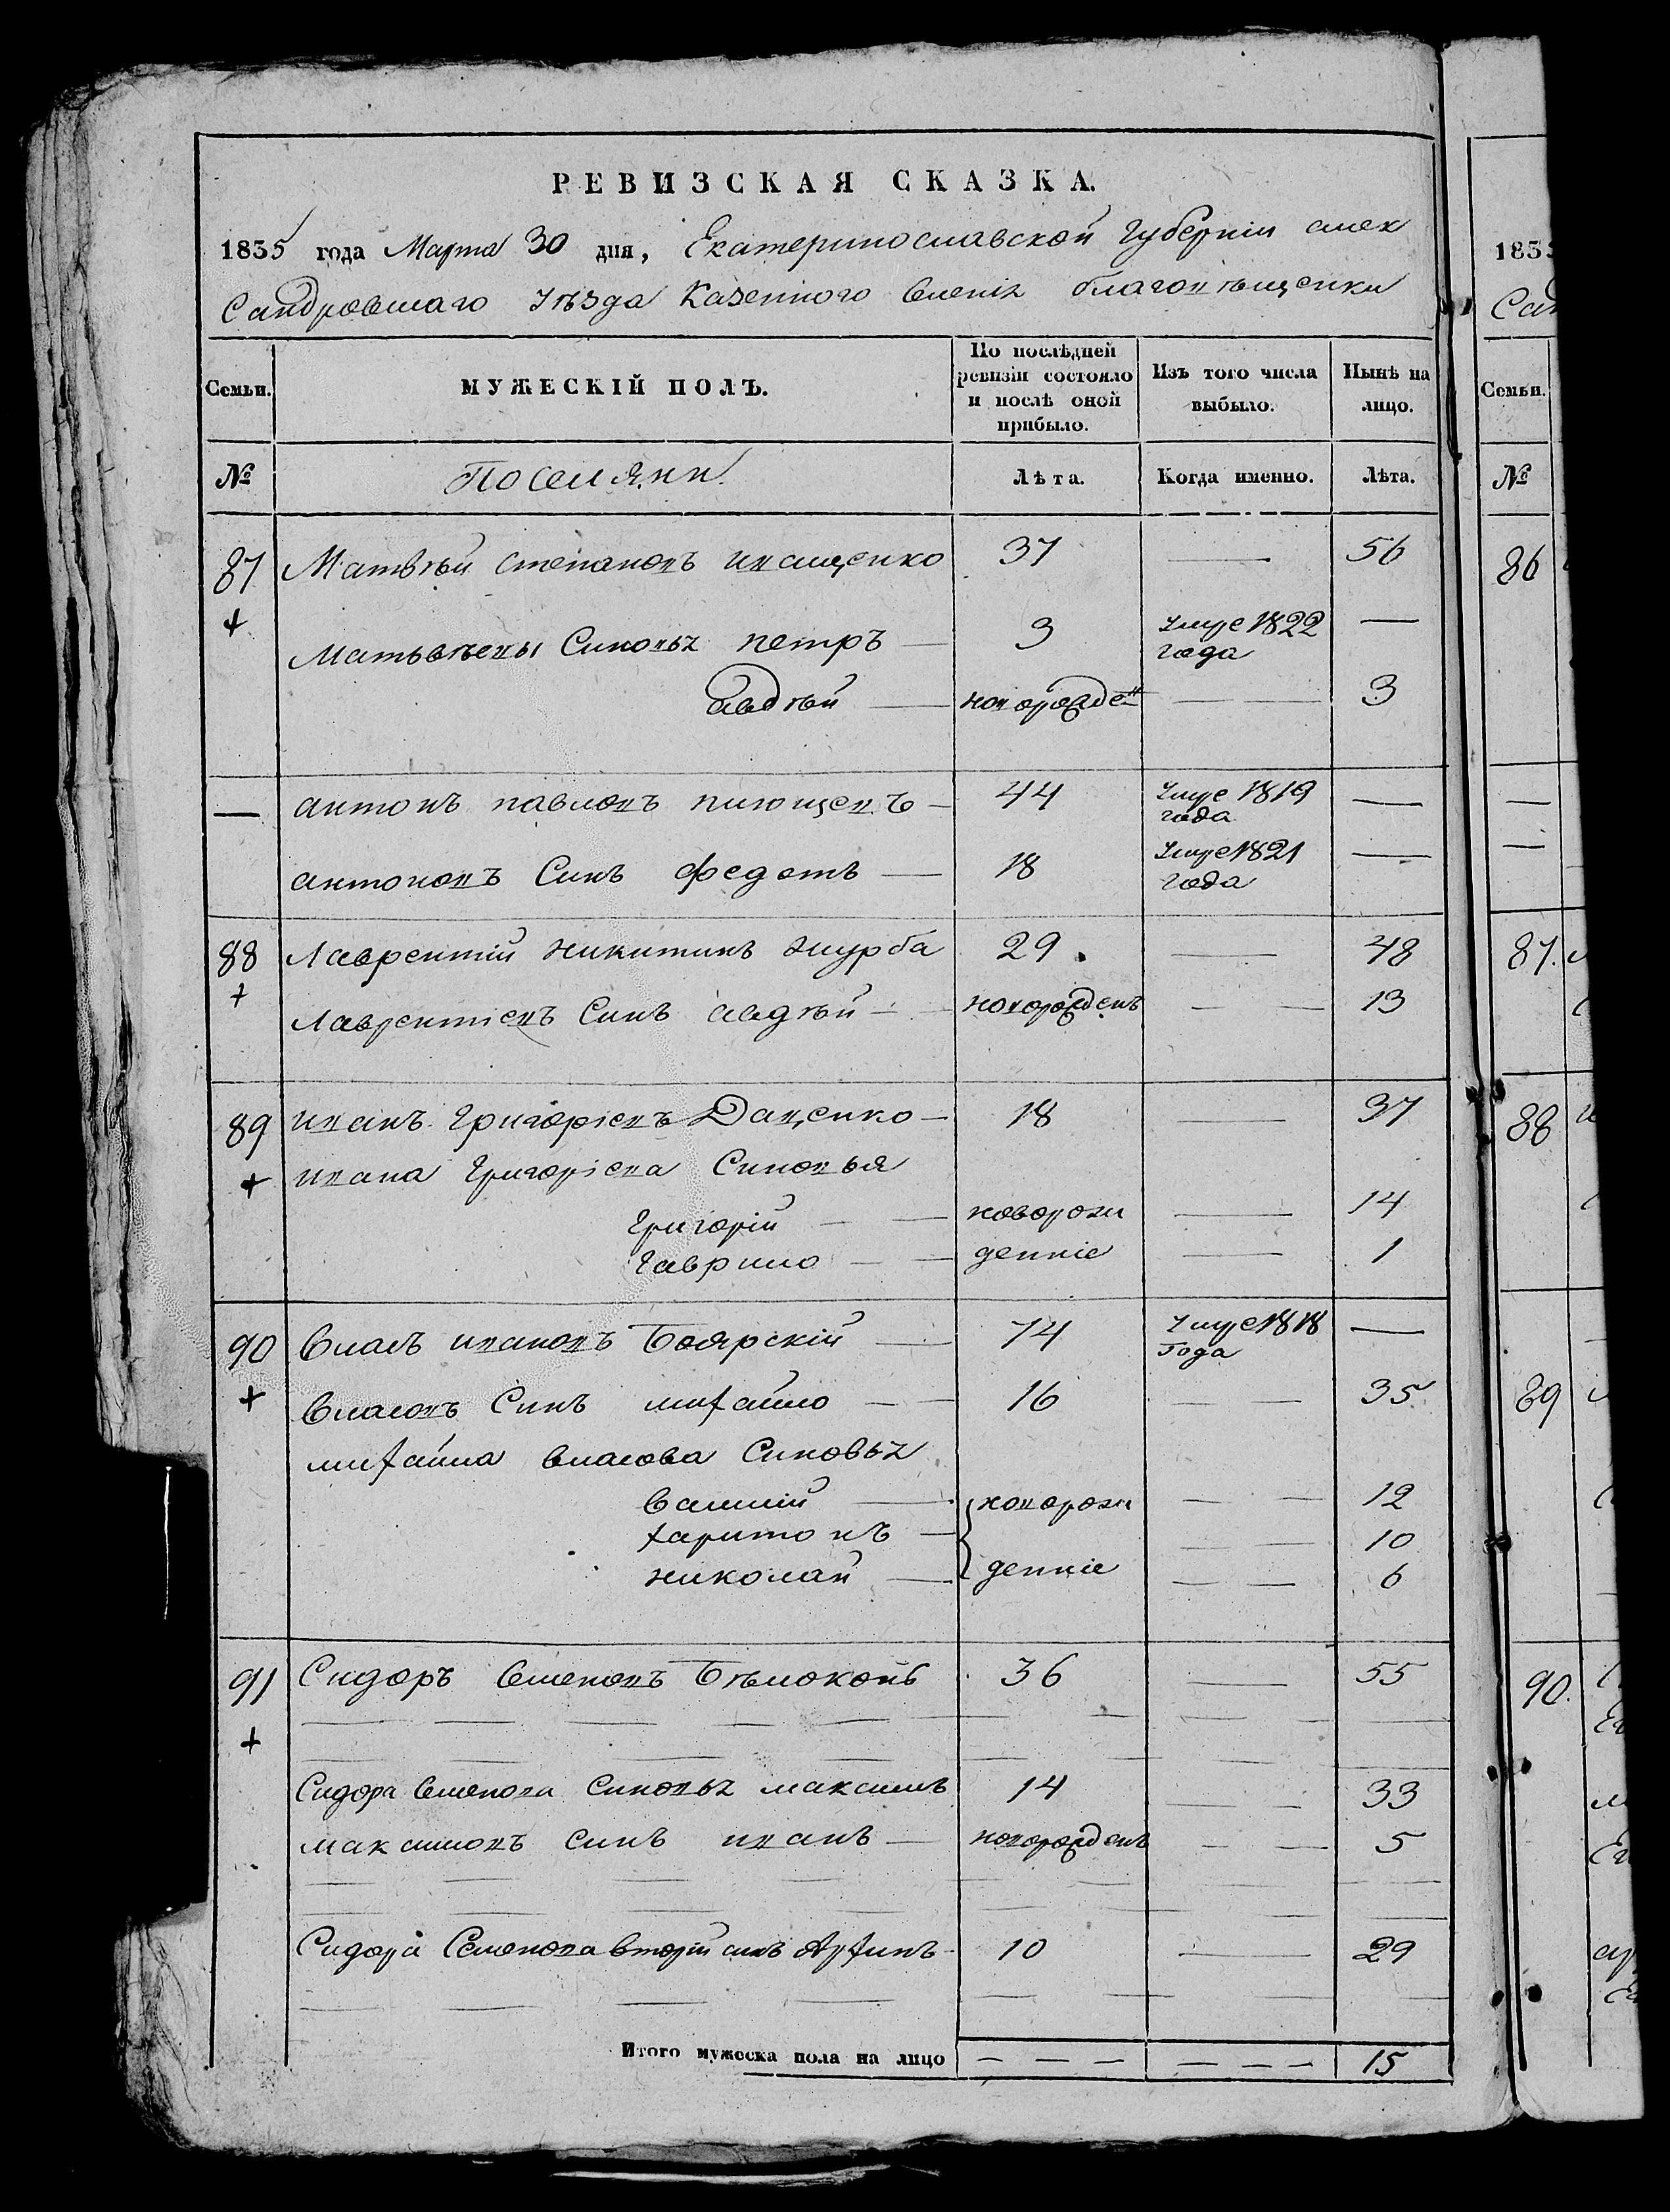 РЕВИЗСКАЯ СКАЗКА.
1835 года Марта 30 дня, Екатеринославской Губерніи алек
Сандровскаго уѣзда Казенного Селенія благовѣщенки
Семьи. МУЖЕСКІЙ ПОЛЪ. По послѣдней ревизіи состояло и послѣ оной прибыло. Изъ того числа выбыло. Нынѣ на лицо.
№ Поселяни Лѣта. Когда именно. Лѣта.
87 Матвѣй степановъ иващенко 37 — 56
Матвѣевы Синовья петръ — 3 умре 1822 года —
авдѣй — новорожден — — 3
— антонъ павловъ плющевъ — 44 умре 1819 года —
антоновъ Синъ федотъ — 18 умре 1821 года —
88 Лаврентій никитинъ журба 29 — 48
Лаврентіевъ Синъ авдѣй — новорожденъ — — 13
89 иванъ григоріевъ Даценко — 18 — 37
ивана григоріева Синовья
григорій — — новорож — 14
гаврило — — денніе — 1
90 Власъ ивановъ Боярскій — 74 умре 1818 Года —
Власовъ Синъ михайло — — 16 — — 35
михайла власова Синовья
Василій — новорож — — 12
харитонъ — — — 10
николай — денніе — — 6
91 Сидоръ Семеновъ Бѣлоконь 36 — 55
Сидора Семенова Синовья максимъ 14 — — 33
максимовъ синъ иванъ — новорожденъ — — 5
Сидора Семенова вторій синъ Архипъ — 10 — 29
Итого мужеска пола на лицо — — — — — — 15
1835
Семьи.
№
86
87.
88
89
90.